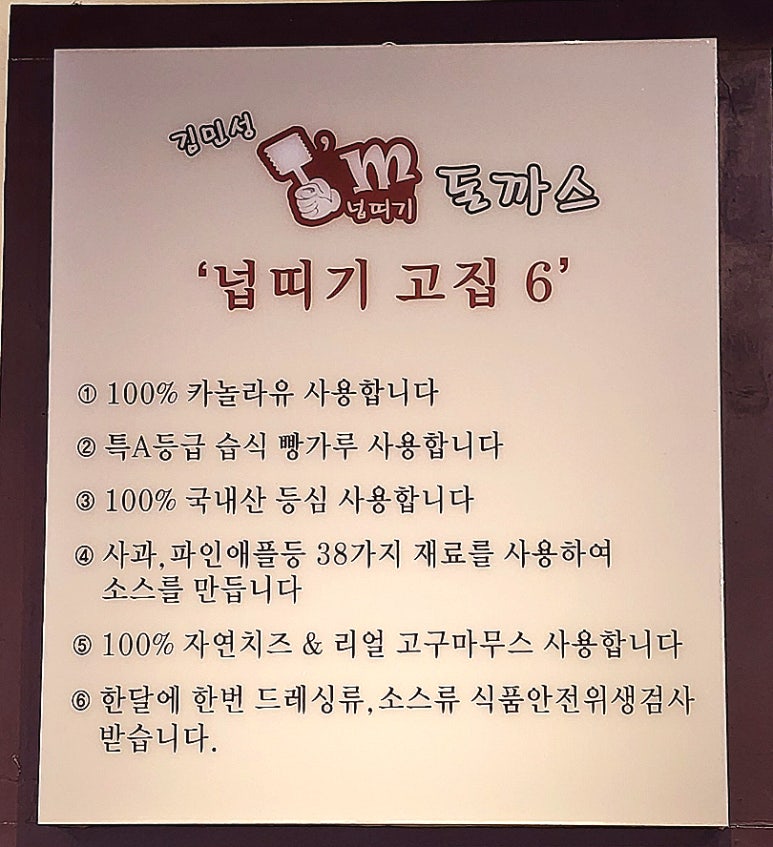 김민성
I'm
넙띠기
돈까스
‘넙띠기 고집 6’
① 100% 카놀라유 사용합니다
② 특A등급 습식 빵가루 사용합니다
③ 100% 국내산 등심 사용합니다
④ 사과,파인애플등 38가지 재료를 사용하여
소스를 만듭니다
⑤ 100% 자연치즈 & 리얼 고구마무스 사용합니다
⑥ 한달에 한번 드레싱류,소스류 식품안전위생검사
받습니다.